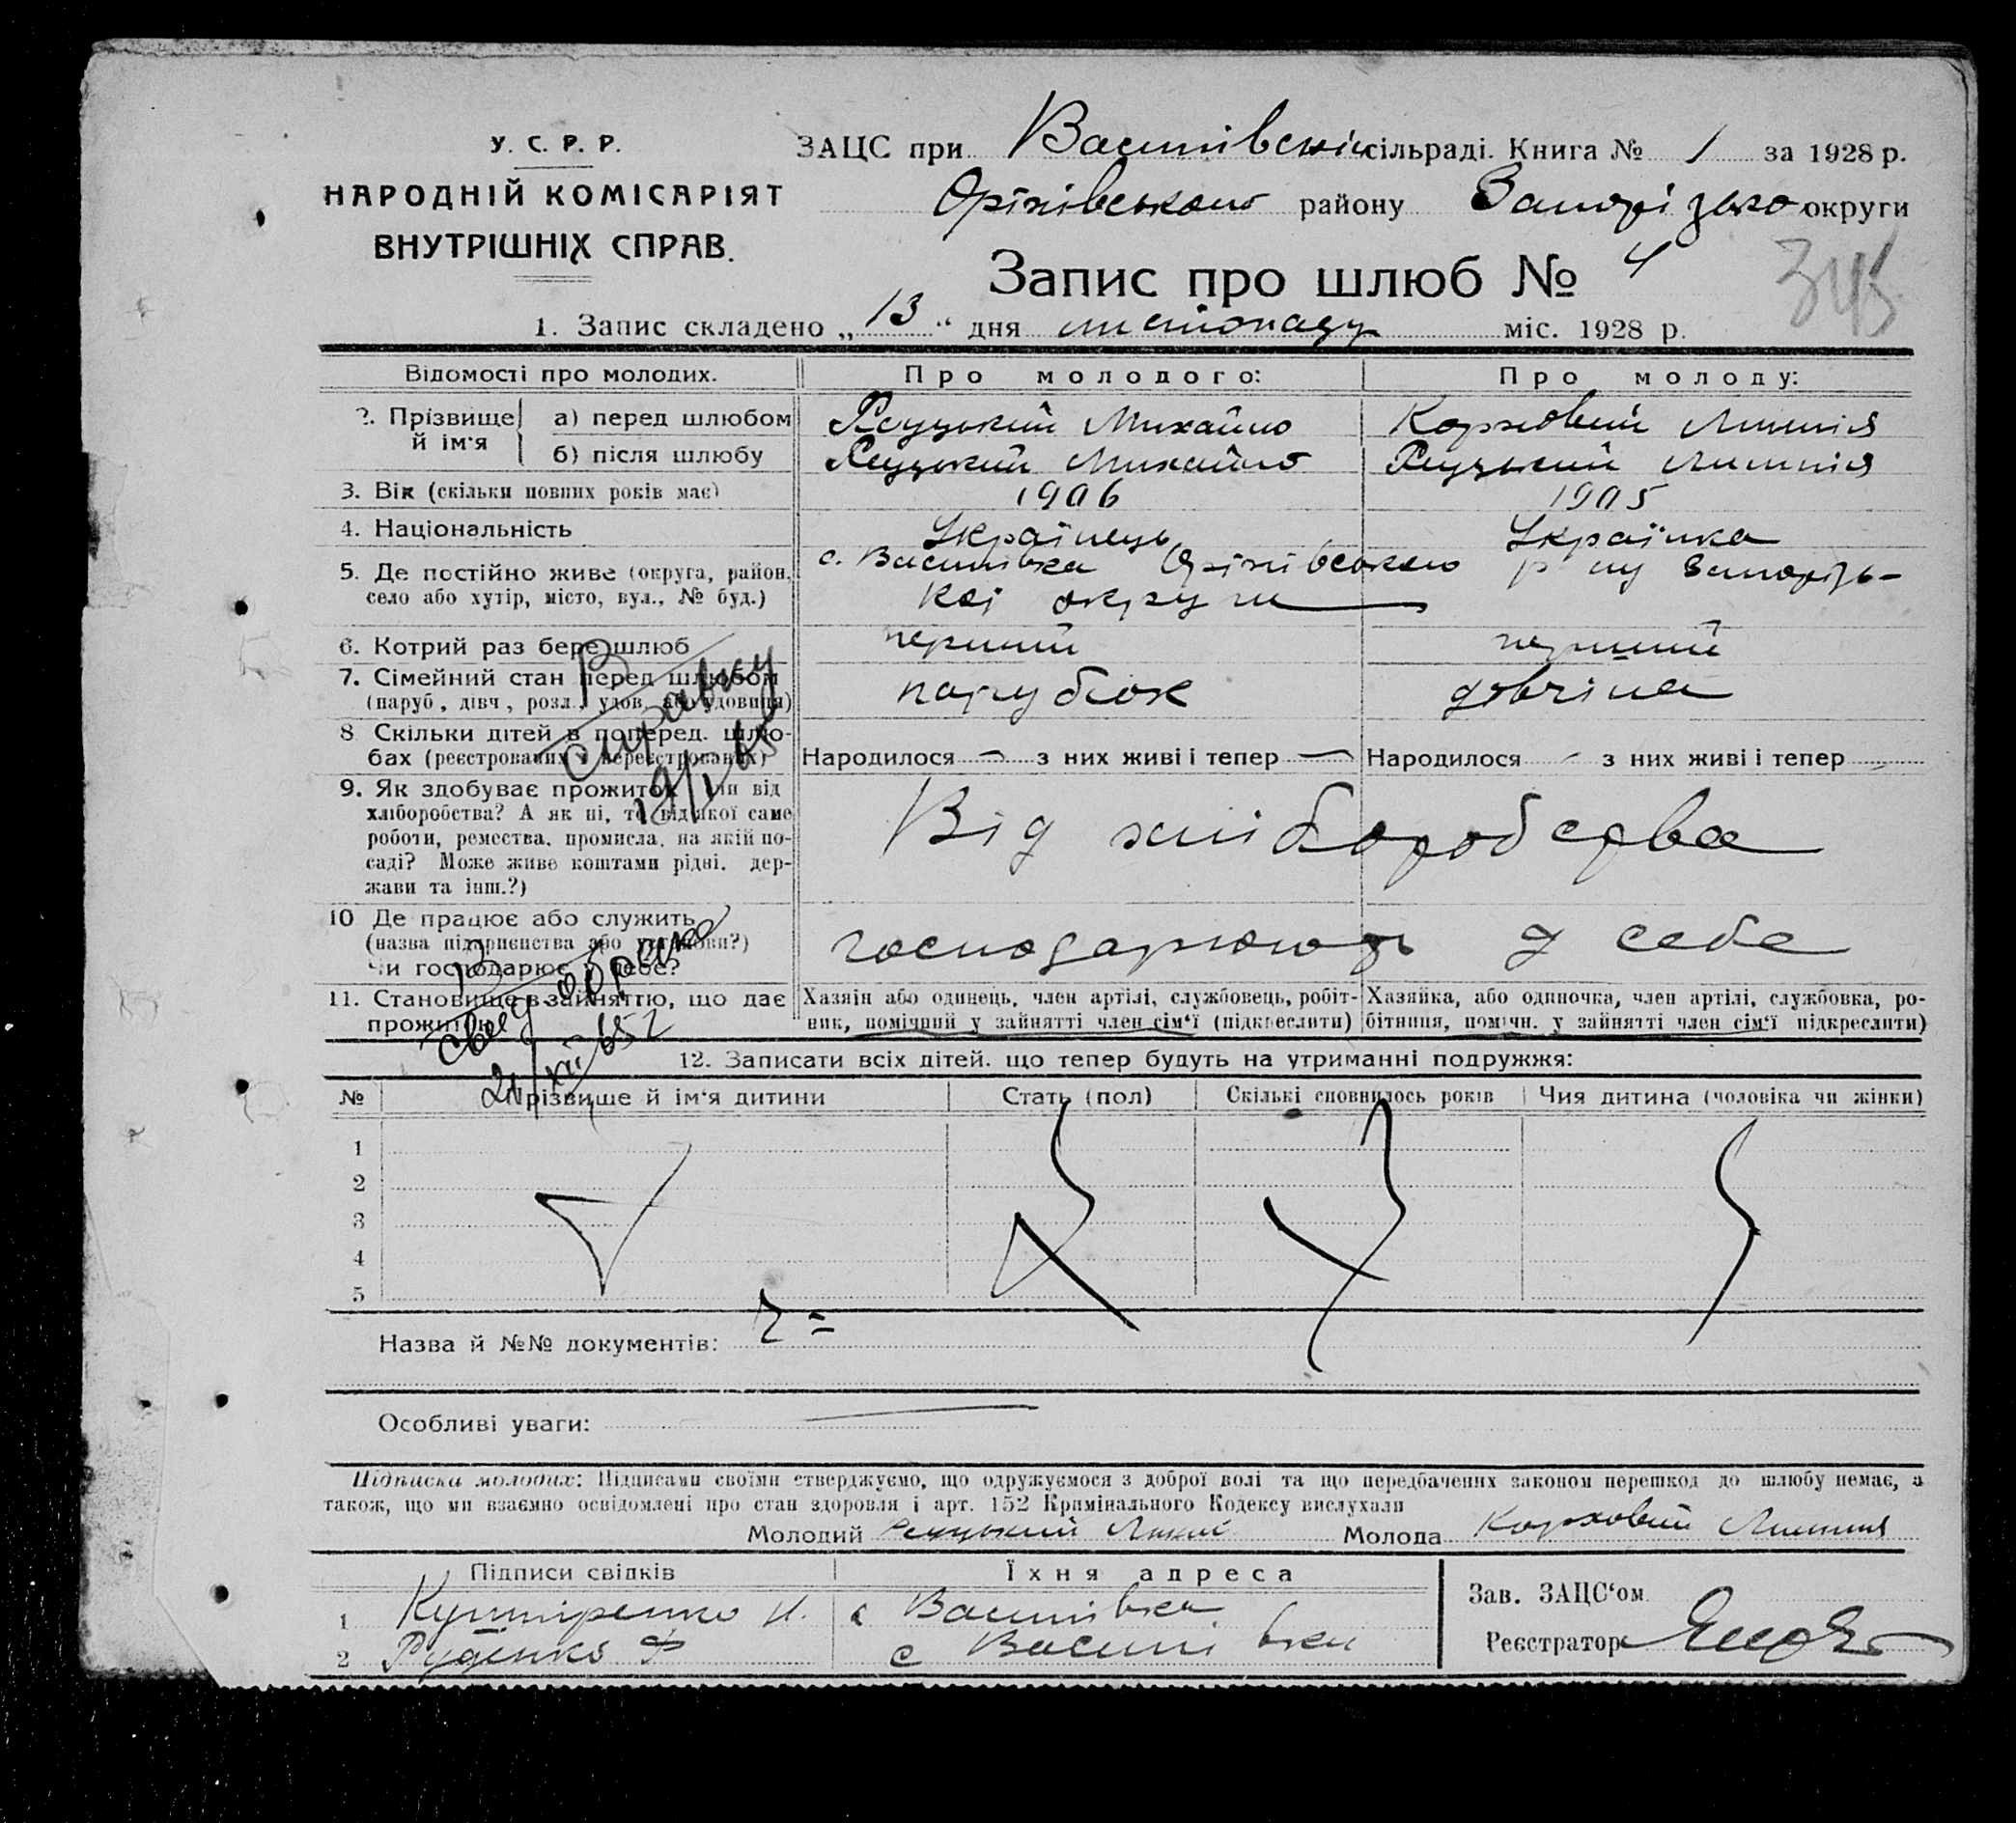 У. С. Р. Р.
НАРОДНІЙ КОМІСАРІЯТ
ВНУТРІШНІХ СПРАВ.
ЗАЦС при Василівскій сільраді. Книга № 1 за 1928 р.
Оріхівського району Запорізько округи
Запис про шлюб № 4
345
1. Запис складено „13“ дня листопаду міс. 1928 р.
Відомості про молодих. Про молодого: Про молоду:
2. Прізвище й ім'я а) перед шлюбом Михайло
б) після шлюбу Михайло
3. Вік (скільки повних років має) 1906 1905
4. Національність Українець Українка
5. Де постійно живе (округа, район, село або хутір, місто, вул., № буд.) с. Василівка Оріхівського р-ну Запорізь-
кої округи
6. Котрий раз бере шлюб перший перший
7. Сімейний стан перед шлюбом (паруб, дівч, розл, удов, або удовиця) парубок дівчина
8 Скільки дітей в поперед. шлю-
бах (реєстрованих і нереєстрованих) Народилося — з них живі і тепер — Народилося - з них живі і тепер
9. Як здобуває прожиток чи від
хліборобства? А як ні, то від якої саме
роботи, ремества, промисла, на якій по-
саді? Може живе коштами рідні, дер-
жави та інш.?)
Від хліборобства
10 Де працює або служить
(назва підприємства або установи?)
Чи господарює у себе?
господарюють у себе
11. Становище в зайняттю, що дає
прожиток
Хазяін або одинець, член артілі, службовець, робіт-
ник, помічний у зайнятті член сім'ї (підкреслити)
Хазяйка, або одиночка, член артілі, службовка, ро-
бітниця, помічн. у зайнятті член сім'ї підкреслити)
12. Записати всіх дітей, що тепер будуть на утриманні подружжя:
№ Прізвище й ім'я дитини Стать (пол) Скількі сповнилось років Чия дитина (чоловіка чи жінки)
1
2
3
4
5
Назва й №№ документів:
Особливі уваги:
Підписки молодих: Підписами своїми стверджуємо, що одружуємося з доброї волі та що передбачених законом перешкод до шлюбу немає, а
також, що ми взаємно освідомлені про стан здоровля і арт. 152 Кримінального Кодексу вислухали
Молодий Молода Корховий
Підписи свідків Їхня адреса
1 с Василівка
2 Руденко Ф с Василівки
Зав. ЗАЦС'ом
Реєстратор